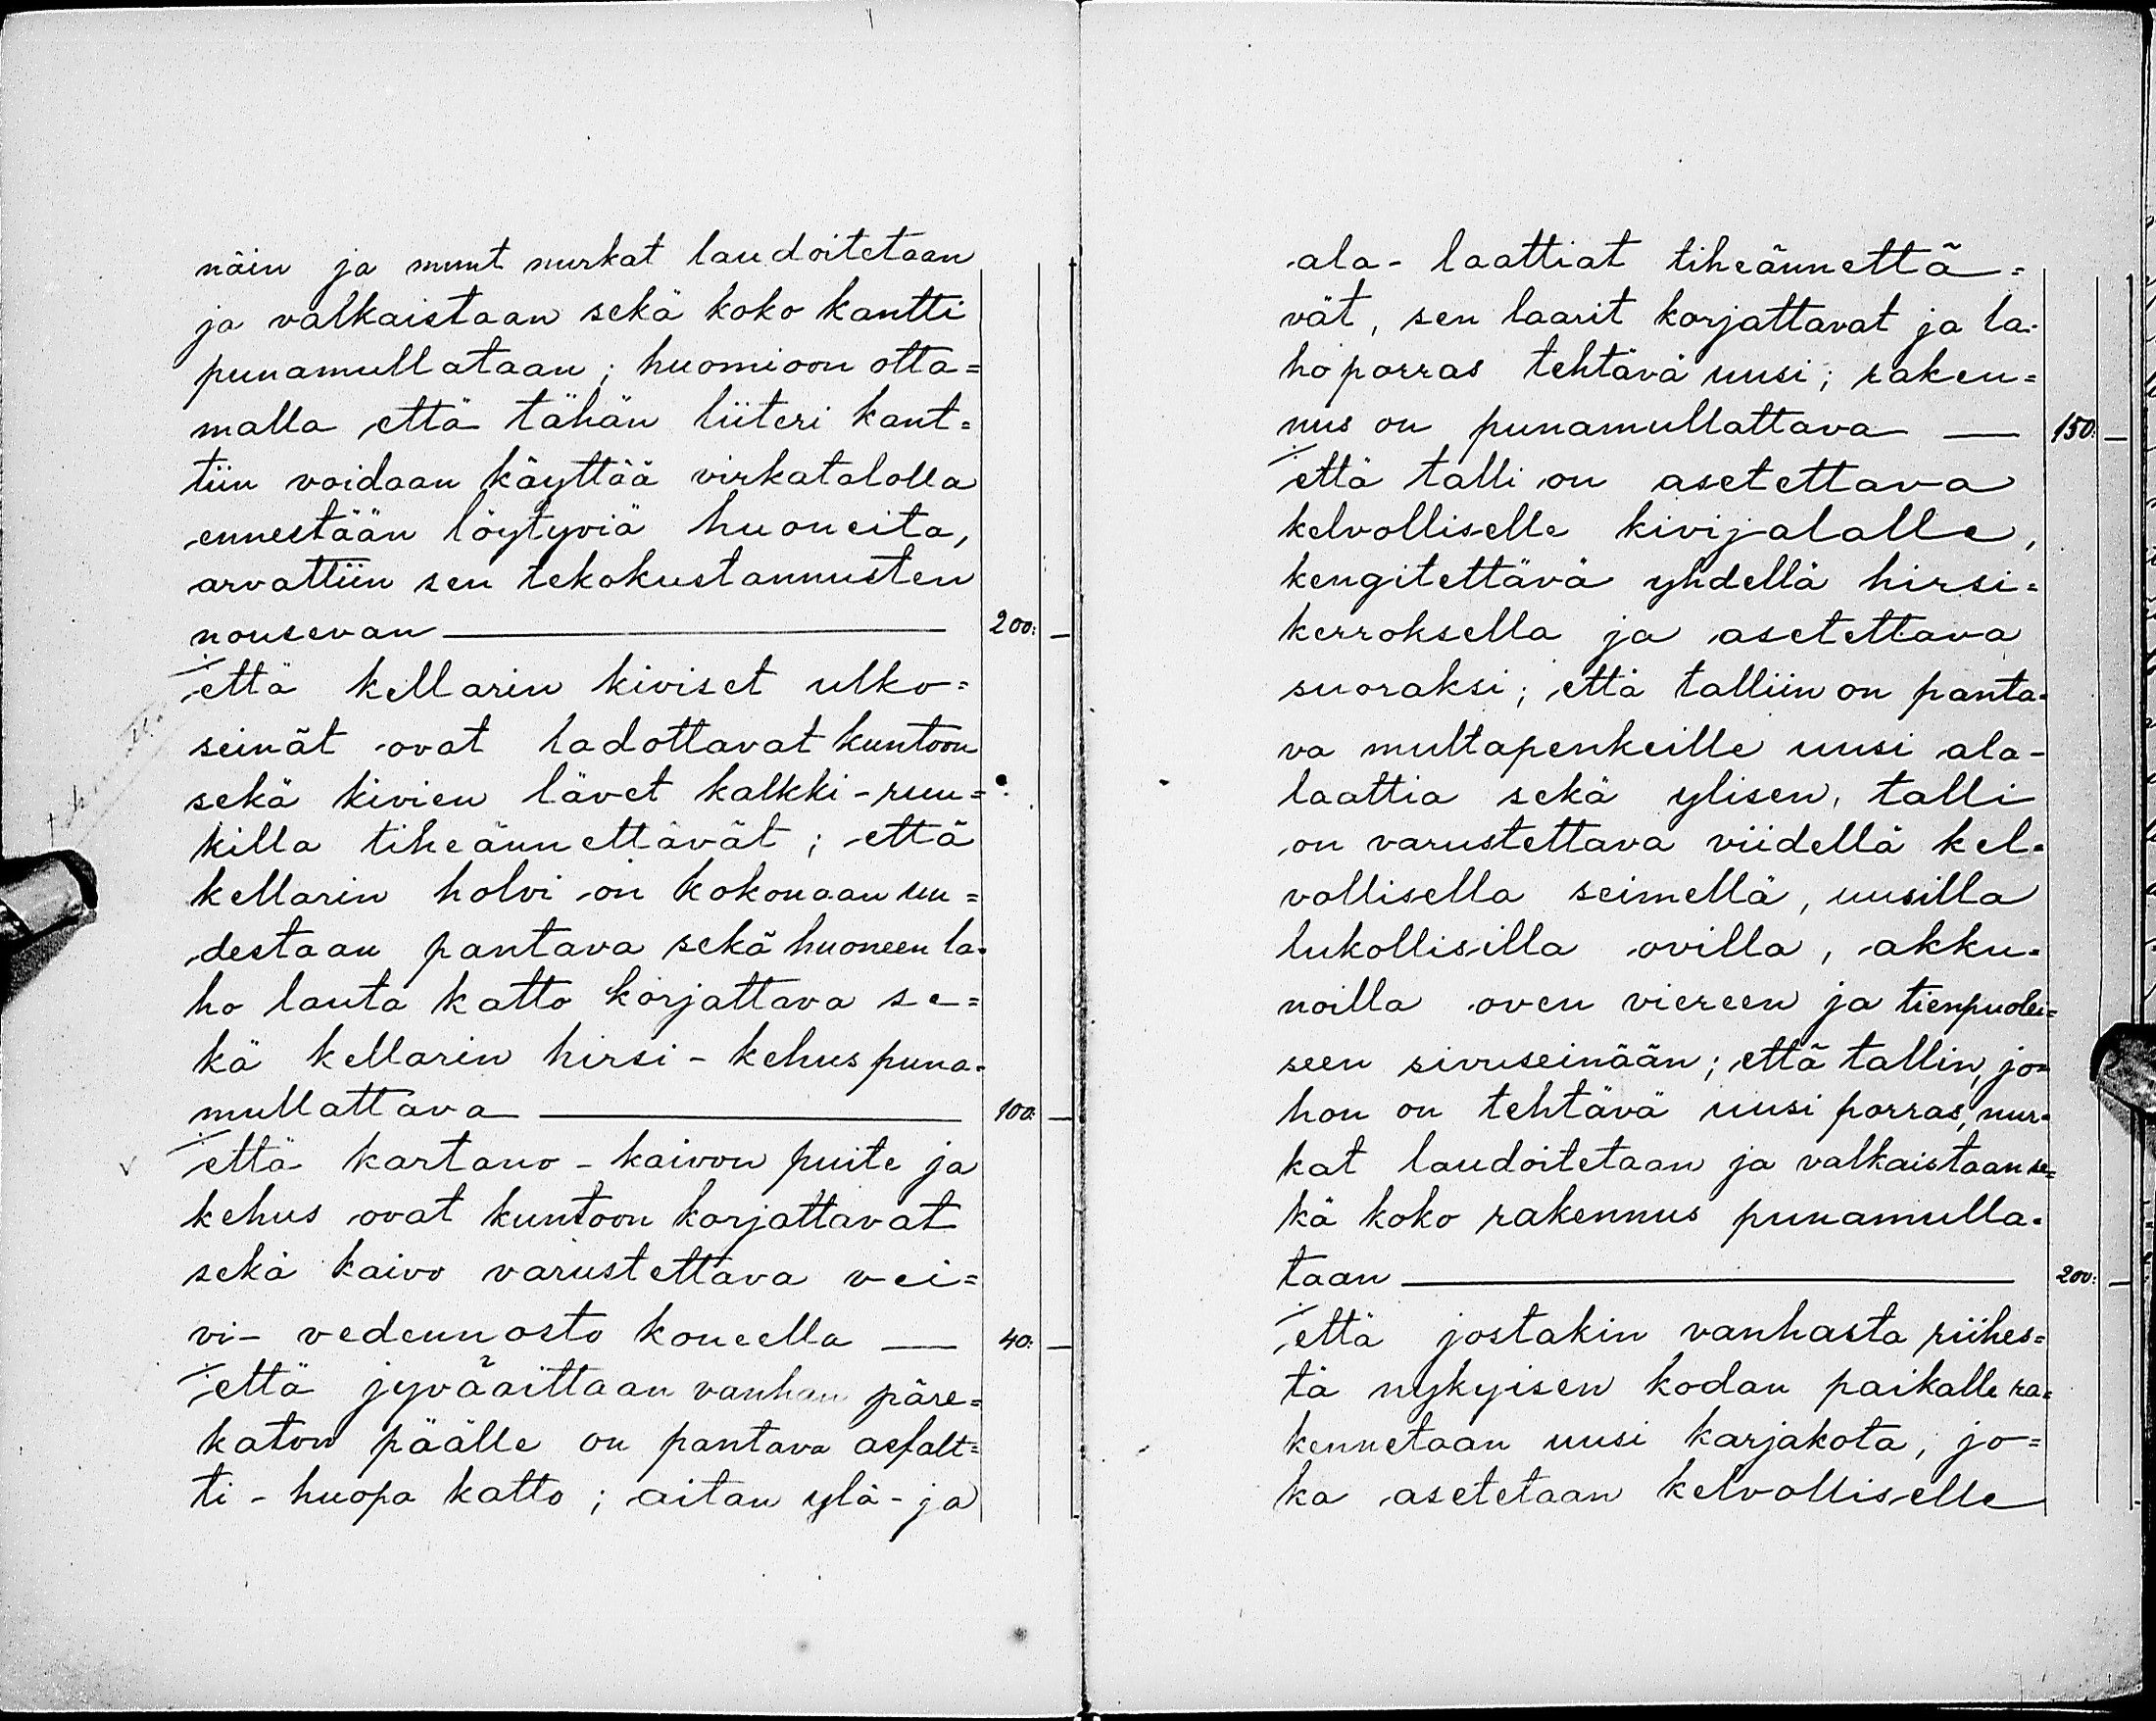 näin ja muut nurkat laudoitetaan
ja valkaistaan sekä koko kantti
punamullataan; huomioon otta=
malla että tähän liiteri kant=
tiin voidaan käyttää virkatalolla
ennestään löytyviä huoneita,
arvattiin sen tekokustannusten
nousevan — 200: —
että kellarin kiviset ulko=
seinät ovat ladottavat kuntoon
sekä kivien lävet kalkki-ruu=
killa tiheännettävät; että
kellarin holvi on kokonaan uu=
destaan pantava sekä huoneen la=
ho lauta katto korjattava se=
kä kellarin hirsi-kehus puna=
mullattava — 100: —
että kartano-kaivon puite ja
kehus ovat kuntoon korjattavat
sekä kaivo varustettava vei=
vi- vedennosto koneella — 40: —
että jyväaittaan vanhan päre=
katon päälle on pantava asfalt=
ti-huopa katto; aitan ylä- ja
ala-laattiat tiheännettä=
vät, sen laarit korjattavat ja la=
hoporras tehtävä uusi; raken=
nus on punamullattava — 150: —
että talli on asetettava
kelvolliselle kivijalalle,
kengitettävä yhdellä hirsi=
kerroksella ja asetettava
suoraksi; että talliin on panta=
va multapenkeille uusi ala-
laattia sekä ylisen, talli
on varustettava viidellä kel=
vollisella seimellä, uusilla
lukollisilla ovilla, akku=
noilla oven viereen ja tienpuolei=
seen sivuseinään; että tallin, jo=
hon on tehtävä uusi porras, nur=
kat laudoitetaan ja valkaistaan se=
kä koko rakennus punamulla=
taan — 200: —
että jostakin vanhasta riihes=
tä nykyisen kodan paikalle ra=
kennetaan uusi karjakota, jo=
ka asetetaan kelvolliselle